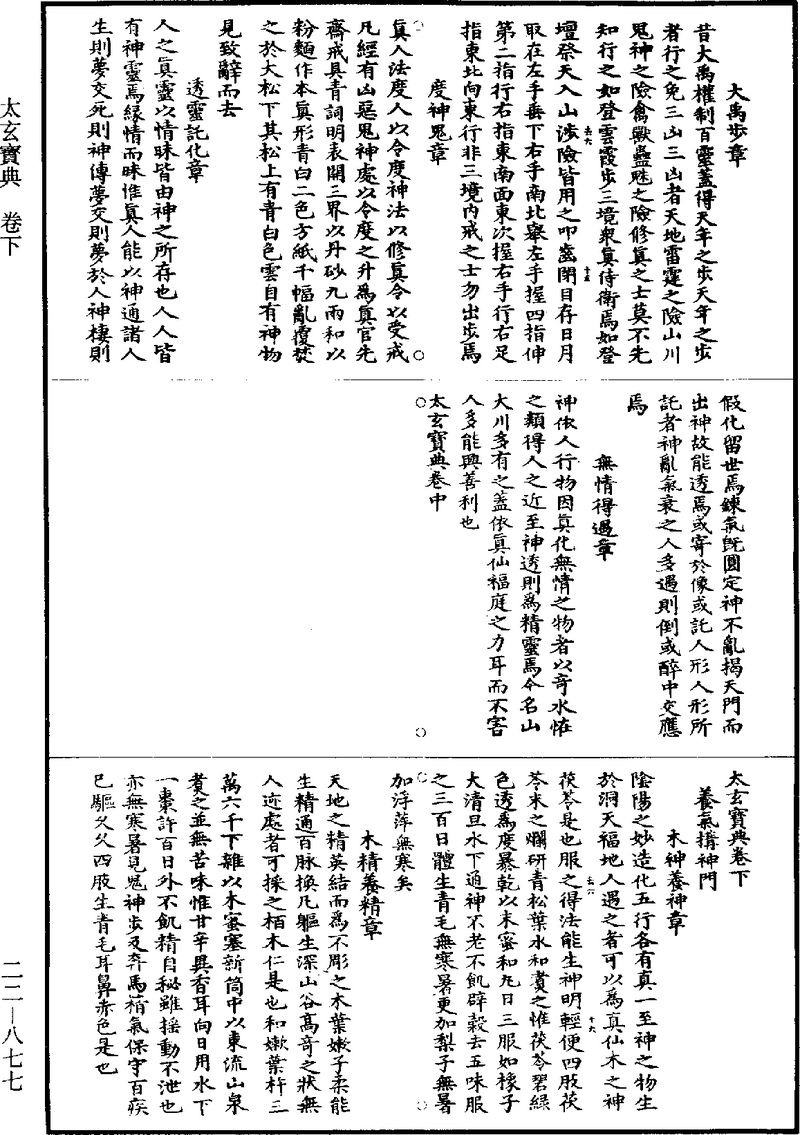 大禹步章
昔大禹權制百靈蓋得天年之步天年之步
者行之免三山三山者天地雷霆之險山川
鬼神之險禽獸蠱魅之險修真之士莫不先
知行之如登雲霞步三境衆真侍衛焉如登
壇祭天入山涉險皆用之叩齒閉目存日月
取在左手垂下右手南北察左手握四指伸
第二指行右指東南面東次握右手行右足
指東北向東行非三境內戒之士勿出步焉
度神鬼章
真人法度人以令度神法以修真令以受戒
凡經有凶惡鬼神處以令度之升爲真官先
齋戒具青詞明表開三界以丹砂九兩和以
粉麵作本真形青白二色方紙千幅亂覆焚
之於大松下其松上有青白色雲自有神物
見致辭而去
透靈託化章
人之真靈以情昧皆由神之所存也人人皆
有神靈焉緣情而昧惟真人能以神通諸人
生則夢交死則神傳夢交則夢於人神棲則
假化留世焉鍊氣既圓定神不亂揭天門而
出神故能透焉或寄於像或託人形人形所
託者神亂氣衰之人多遇則倒或醉中交應
焉
無情得遇章
神依人行物因真化無情之物者以奇水恠
之類得人之近至神透則爲精靈焉今名山
大川多有之蓋依真仙福庭之力耳而不害
人多能興善利也
太玄寶典卷中
太玄寶典卷下
養氣搆神門
木神養神章
陰陽之妙造化五行各有真一至神之物生
於洞天福地人遇之者可以爲真仙木之神
茯苓是也服之得法能生神明輕便四肢茯
苓末之爛研青松葉水和煑之惟茯苓碧綠
色透爲度暴乾以末蜜和丸日三服如橡子
大清旦水下通神不老不飢辟穀去五味服
之三百日體生青毛無寒暑更加梨子無暑
加浮萍無寒矣
木精養精章
天地之精英結而爲不彫之木葉嫩子柔能
生精通百脉換凡軀生深山谷高奇之狀無
人迹處者可採之栢木仁是也和嫩葉杵三
萬六千下雜以木蜜塞新筒中以東流山泉
煑之並無苦味惟甘辛異香耳向日用水下
一棗許百日外不飢精自秘雖搖動不泄也
亦無寒暑見鬼神步及奔馬精氣保守百疾
已驅久久四肢生青毛耳鼻赤色是也
太玄寶典　卷下
二二—八七七